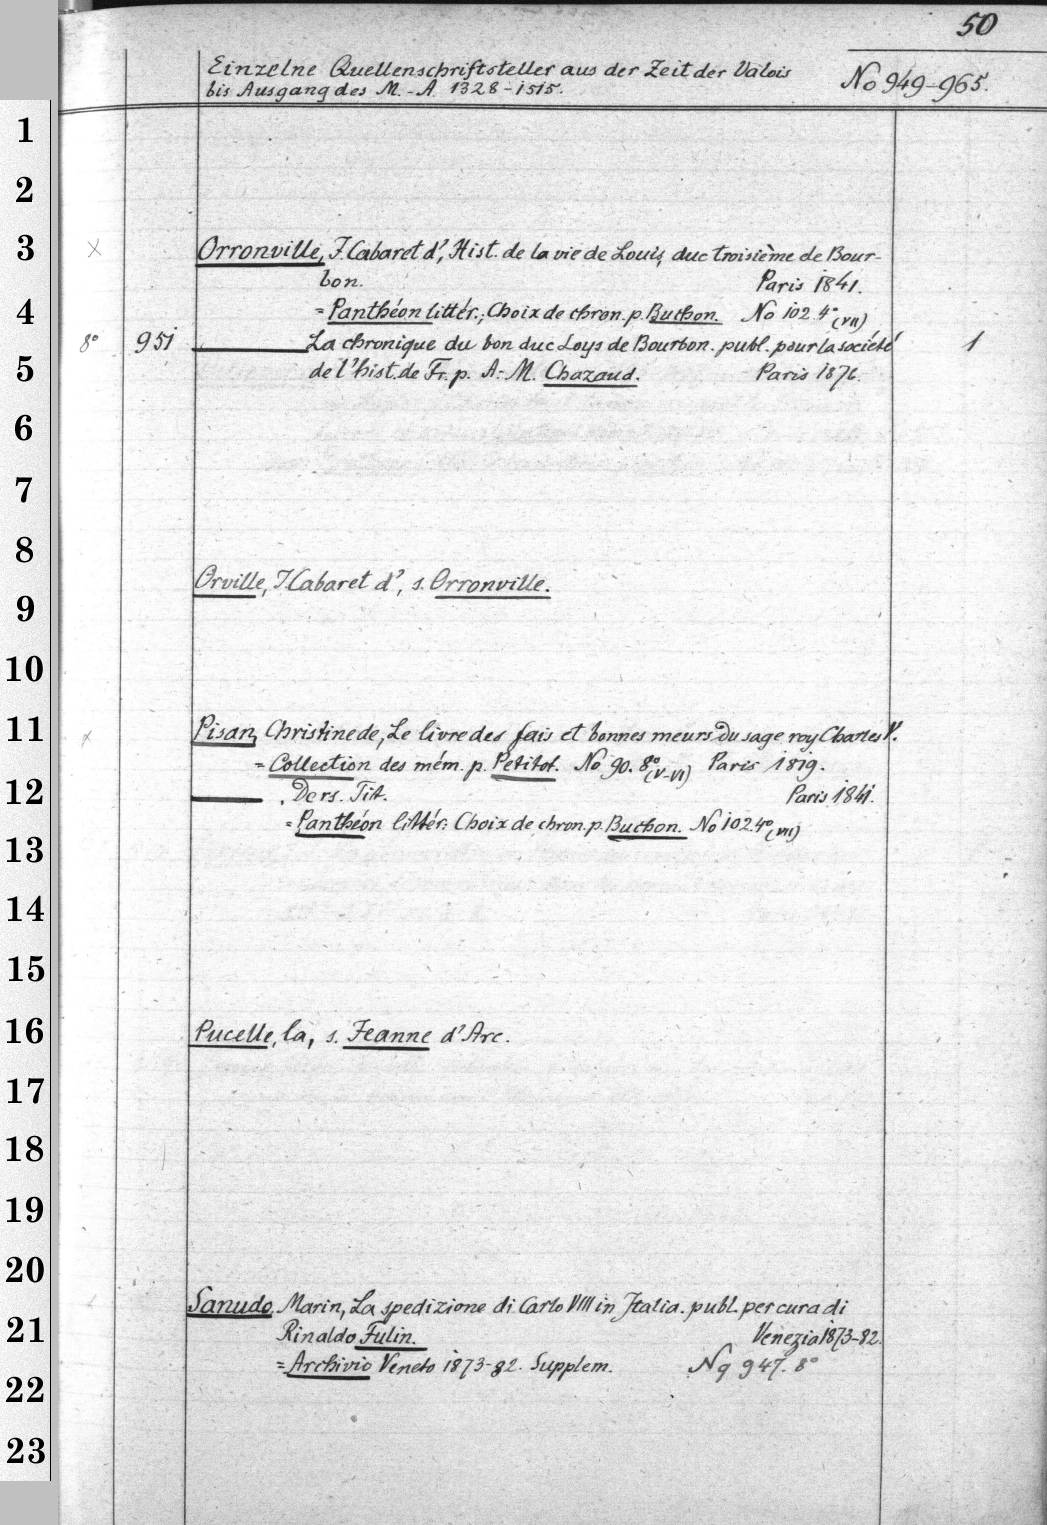 50
Einzelne Quellenschriftsteller aus der Zeit der Valois
bis Ausgang des M.-A. 1328-1515.
No 949-965.
1
2
3 × Orronville, J. Cabaret d', Hist. de la vie de Louis, duc troisième de Bour-
bon. Paris 1841.
4 = Panthéon littér.; Choix de chron. p. Buchon. No 102. 4° (VII)
8° 951 La chronique du bon duc Loys de Bourbon. publ. pour la société 1
5 de l'hist. de Fr. p. A.-M. Chazaud. Paris 1876.
6
7
8
Orville, J. Cabaret d', s. Orronville.
9
10
11 × Pisan, Christine de, Le livre des fais et bonnes meurs du sage roy Charles V.
= Collection des mém. p. Petitot. No 90. 8° (V-VI) Paris 1819.
12 Ders. Tit. Paris 1841.
= Panthéon littér: Choix de chron. p. Buchon. No 102. 4° (VII)
13
14
15
16 Pucelle, la, s. Jeanne d'Arc.
17
18
19
20
Sanudo, Marin, La spedizione di Carlo VIII in Italia. publ. per cura di
21 Rinaldo Fulin. Venezia 1873-82.
= Archivio Veneto 1873-82. Supplem. No 947. 8°
22
23